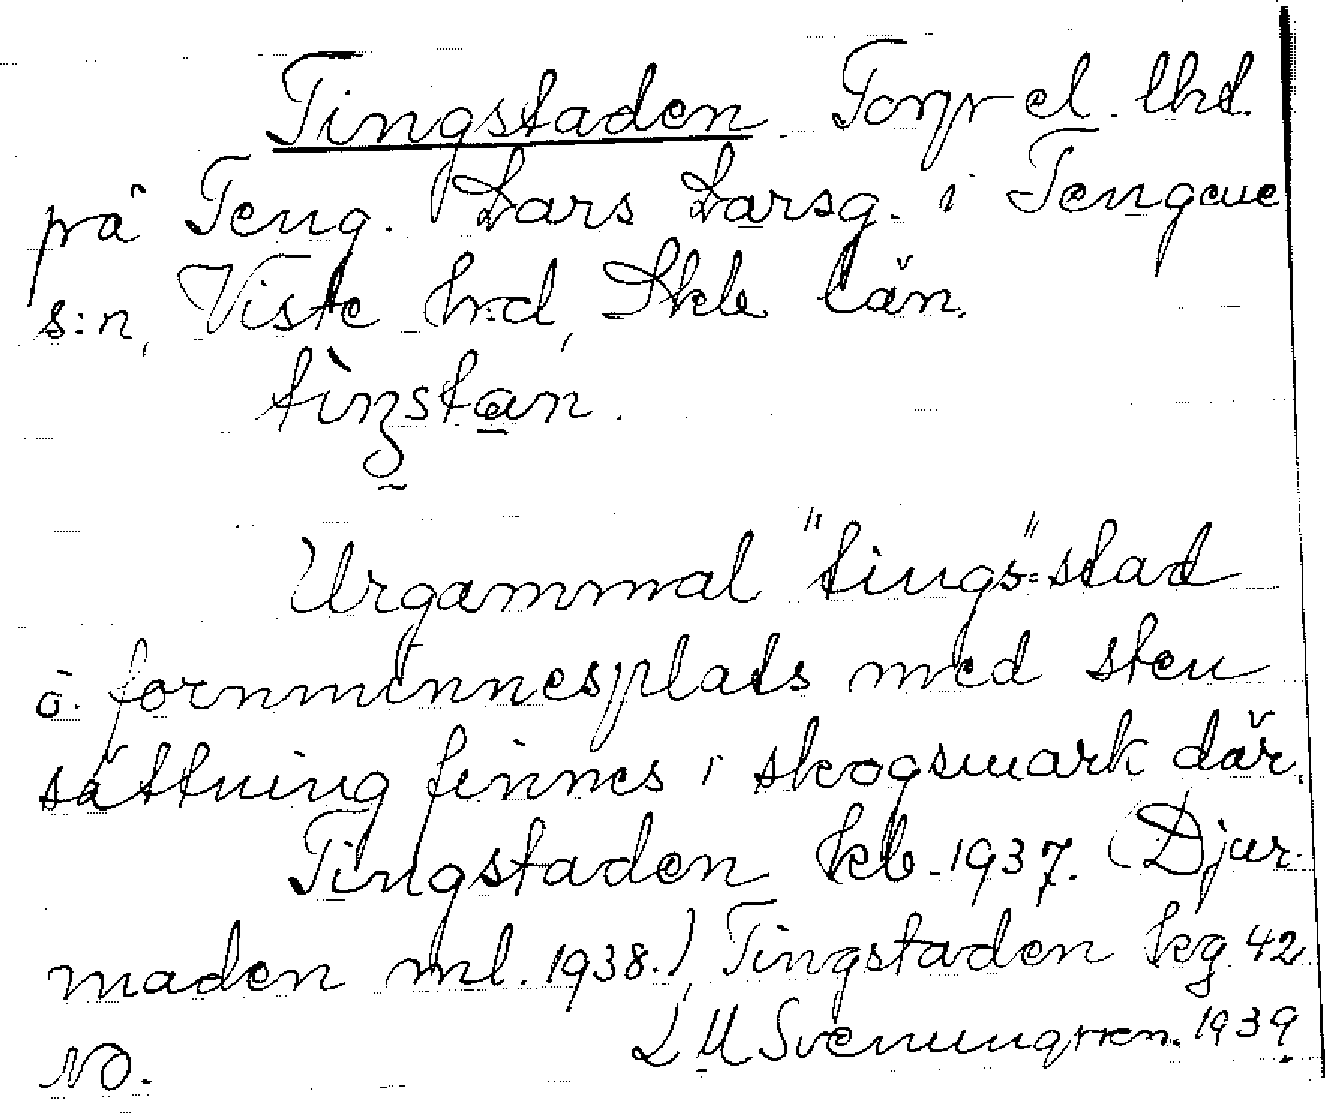 Tingstaden. Torp el. lhd.
på Teng. Lars Larsg. i Tengene
s:n, Viste hrd, Skb län.
Urgammal "tings"-stad
o. fornminnesplats med sten
sättning finnes i skogsmark där.
Tingstaden kb. 1937. (Djur-
maden ml. 1938.) Tingstaden kg. 42.
NO. L M Svenungsson. 1939